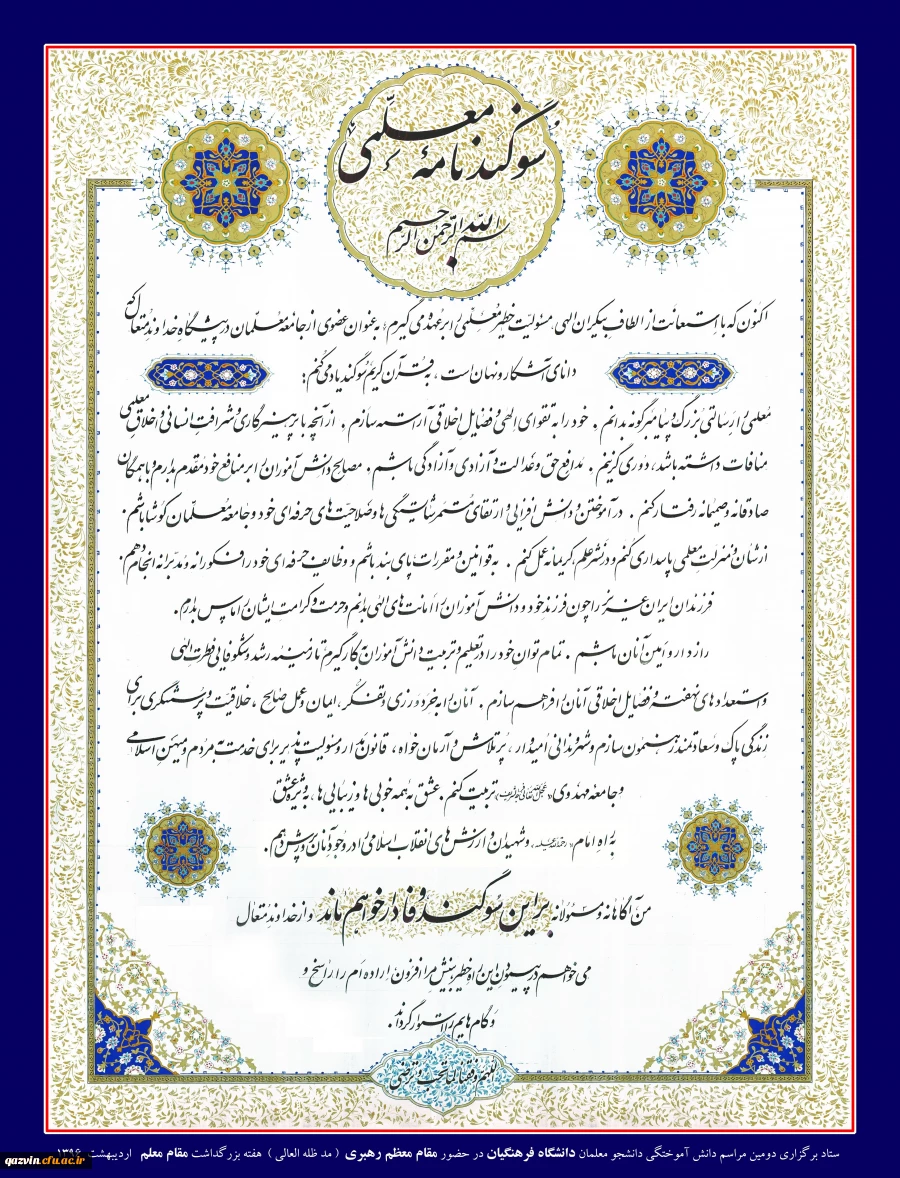 سوگندنامهٔ معلّمی
بسم الله الرحمن الرحیم
اکنون که با استعانت از الطاف بیکران الهی، مسئولیت خطیر معلّمی را بر عهده می گیرم؛ به عنوان عضوی از جامعه معلّمان در پیشگاه خداوند متعال که
دانای آشکار و نهان است، به قرآن کریم سوگند یاد می کنم:
معلمی را رسالتی بزرگ و پیامبرگونه بدانم. خود را به تقوای الهی و فضایل اخلاقی آراسته سازم. از آنچه با پرهیزگاری و شرافت انسانی و اخلاق معلمی
منافات داشته باشد، دوری گزینم. مدافع حق و عدالت و آزادی و آزادگی باشم. مصالح دانش آموزان را بر منافع خود مقدم بدارم و با همگان
صادقانه و صمیمانه رفتار کنم. در آموختن و دانش افزایی و ارتقای مستمر شایستگی ها و صلاحیّت های حرفه ای خود و جامعه معلّمان کوشا باشم.
از شأن و منزلت معلمی پاسداری کنم و در نشر علم، کریمانه عمل کنم. به قوانین و مقررات پای بند باشم و وظایف حرفه ای خود را فکورانه و مدبرانه انجام دهم.
فرزندان ایران عزیز را چون فرزند خود و دانش آموزان را امانت های الهی بدانم و حرمت و کرامت ایشان را پاس بدارم.
رازدار و امین آنان باشم. تمام توان خود را در تعلیم و تربیت دانش آموزان به کار گیرم تا زمینه رشد و شکوفایی فطرت الهی
و استعدادهای نهفته و فضایل اخلاقی آنان را فراهم سازم. آنان را به خردورزی و تفکّر، ایمان و عمل صالح، خلاقیت و پرسشگری برای
زندگی پاک و سعادتمند رهنمون سازم و شهروندانی امیدوار، پرتلاش و آرمان خواه، قانون مدار و مسئولیت پذیر برای خدمت به مردم و میهن اسلامی
و جامعه مهدوی تربیت کنم. عشق به همه خوبی ها و زیبایی ها، به ویژه عشق
به راه امام و شهیدان و ارزش های انقلاب اسلامی را در وجود آنان پرورش دهم.
من آگاهانه و مسئولانه بر این سوگند وفادار خواهم ماند و از خداوند متعال
می خواهم در پیمودن این راه خطیر بینش مرا افزون، اراده ام را راسخ و
و گام هایم را استوار گرداند.
اللهم وفقنا لما تحب و ترضی
ستاد برگزاری دومین مراسم دانش آموختگی دانشجو معلمان دانشگاه فرهنگیان در حضور مقام معظم رهبری ( مد ظله العالی ) هفته بزرگداشت مقام معلم اردیبهشت ۱۳۹۶
qazvin.cfu.ac.ir